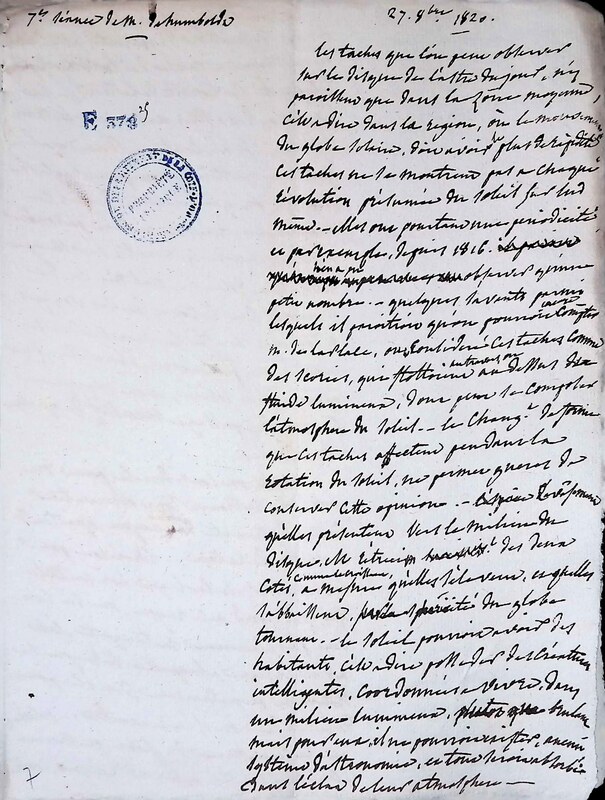 7.e séance de M. de humboldt
27. 8bre 1820.
les taches que l'on peut observer
sur le disque de l'astre du jour, n'y
paroissent que dans la zone moyenne
c'est a dire dans la région, où le mouvement
du globe solaire, doit avoir plus de rapidité
ces taches ne se montrent pas a chaque
révolution présumée du soleil sur lui
même. - elles ont pourtant une periodicité
et par exemple, depuis 1816.
bien a pu observer qu'un
petit nombre. - quelques savants parmi
lesquels il paroitroit qu'on pourroit compter
M. de la place, ont considéré ces taches comme
des scories, qui flottoient au dessus du
fluide lumineux, dont peut se composer
l'atmosphere du soleil - le chang.t de forme
que ces taches affectent pendant la
rotation du soleil, ne permet gueres de
conserver cette opinion. -
qu'elles présentent vers le milieu du
disque, se rétrécit des deux
cotés, a mesure qu'elles s'élevent, et qu'elles
s'abbaissent, du globe
tournant. - le soleil pourroit avoir des
habitants, c'est a dire posseder des créatures
intelligentes, coordonnées a vivre, dans
un milieu lumineux,
mais pour eux, il ne pourroit exister, aucun
systême d'astronomie, et tout seroit absorbé
dans l'éclat de leur atmosphere -
E 378
7